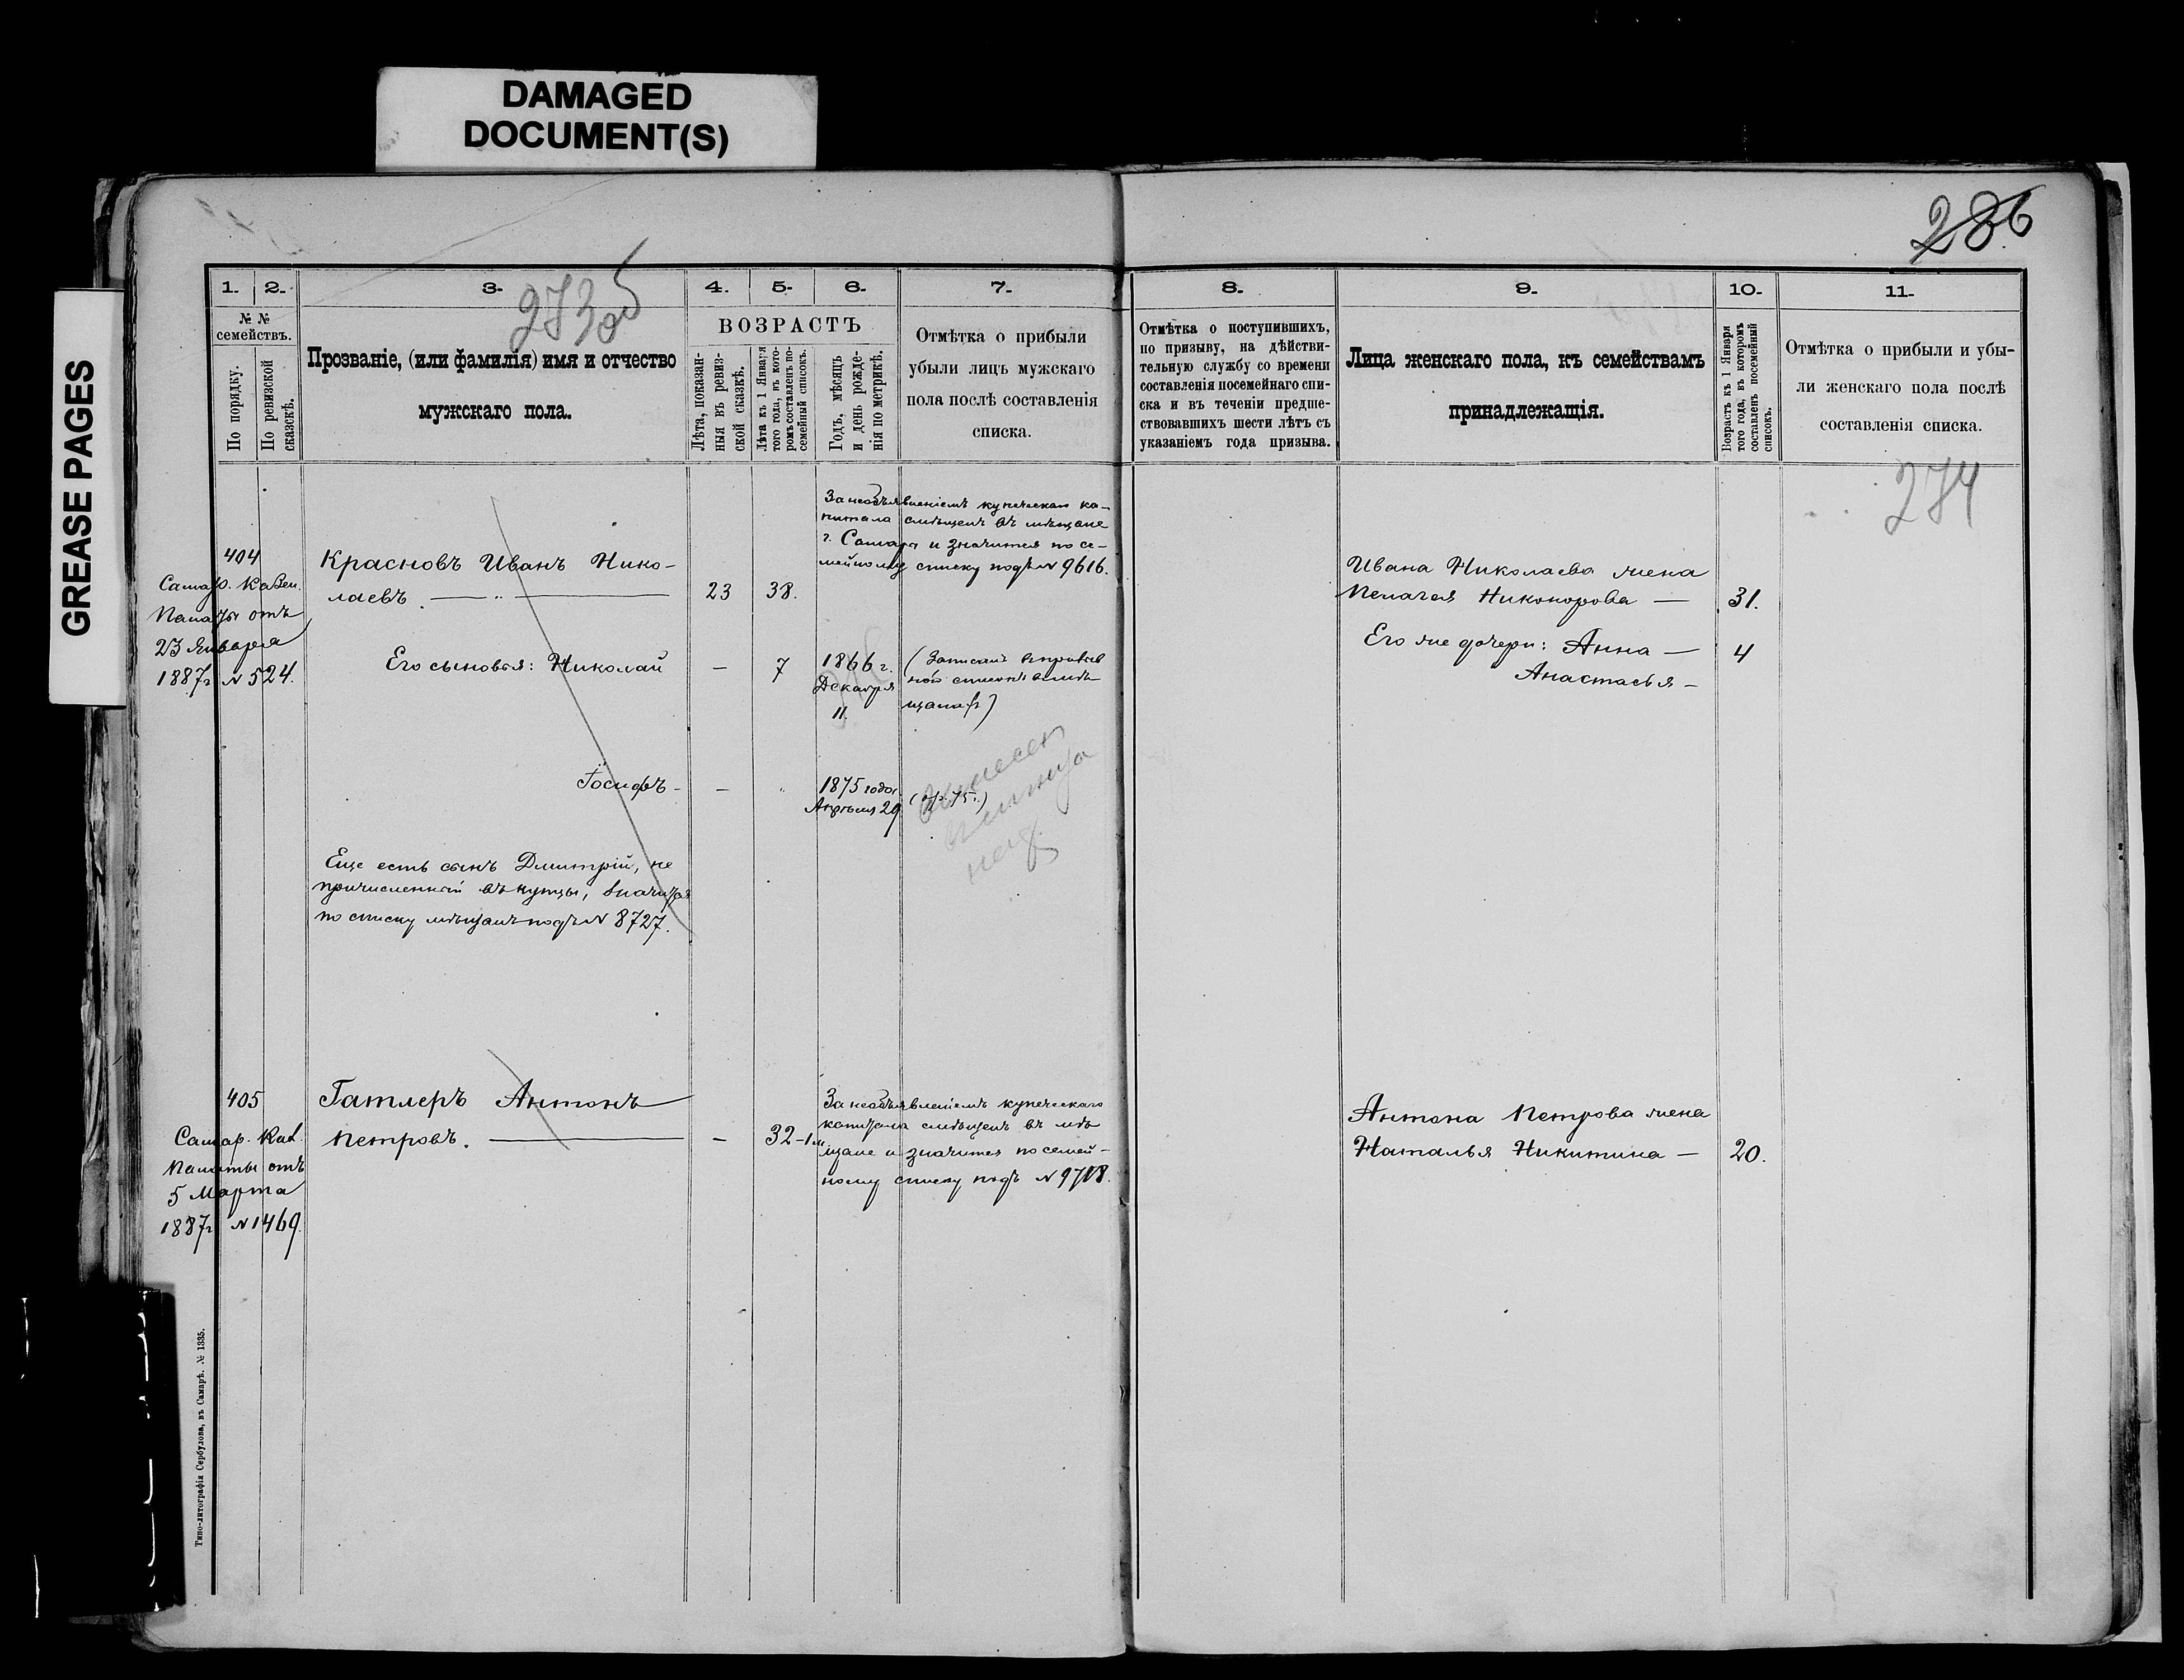 DAMAGED
DOCUMENT(S)
GREASE PAGES
286
1.
2.
3.
4.
5.
6.
7.
8.
9.
10.
11.
273 об
№ №
семействъ.
По порядку.
По ревизской
сказскѣ.
Прозваніе, (или фамилія) имя и отчество
мужскаго пола.
ВОЗРАСТЪ
Лѣта, показан-
ныя въ ревиз-
ской сказкѣ.
Лѣта къ 1 Января
того года, въ кото-
ромъ составленъ по-
семейный списокъ.
Годъ, мѣсяцъ
и день рожде-
нія по метрикѣ.
Отмѣтка о прибыли
убыли лицъ мужскаго
пола послѣ составленія
списка.
Отмѣтка о поступившихъ,
по призыву, на дѣйстви-
тельную службу со времени
составленія посемейнаго спи-
ска и въ теченіи предше-
ствовавшихъ шести лѣтъ съ
указаніемъ года призыва.
Лица женскаго пола, къ семействамъ
принадлежащія.
Возрастъ къ 1 Января
того года, въ которомъ
составленъ посемейный
списокъ.
Отмѣтка о прибыли и убы-
ли женскаго пола послѣ
составленія списка.
274
404
Самар. Казен.
Палаты отъ
23 Января
1887г №524.
Красновъ Иванъ Нико-
лаевъ
23
38.
За необъявленіемъ купеческаго ка-
питала смѣщенъ въ мѣщане
г. Самара и значится по се-
мейному списку подъ № 9616.
Ивана Николаева жена
Пелагея Никонорова —
31.
Его сыновья: Николай
—
7
1866 г.
Декабря
11.
Его же дочери: Анна —
4
Анастасья —
Іосифъ -
—
1875 года
Апрѣля 29
Еще есть сынъ Дмитрій, не
причисленный въ купцы, значится
по списку мѣщанъ подъ № 8727.
405
Самар. Каз.
Палаты отъ
5 Марта
1887г №1469.
Гатлеръ Антонъ
Петровъ.
—
32-1м
За необъявленіемъ купеческаго
капитала смѣщенъ въ мѣ
щане и значится по семей-
ному списку подъ № 9718.
Антона Петрова жена
Наталья Никитина —
20.
Типо-литографія Сербулова, въ Самарѣ. № 1335.